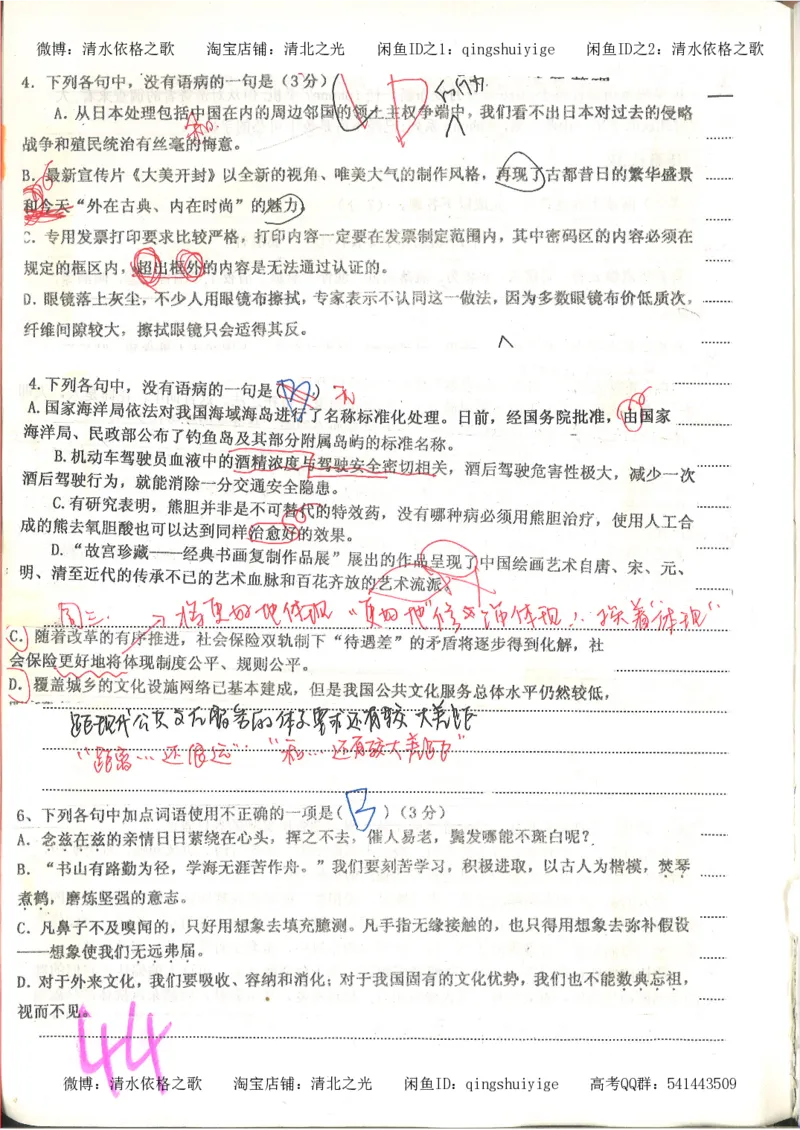 微博：清水依格之歌 淘宝店铺：清北之光 闲鱼ID之1：qingshuiyige 闲鱼ID之2：清水依格之歌
4．下列各句中，没有语病的一句是（3分）
A．从日本处理包括中国在内的周边邻国的领土主权争端中，我们看不出日本对过去的侵略
战争和殖民统治有丝毫的悔意。
B．最新宣传片《大美开封》以全新的视角、唯美大气的制作风格，再现了古都昔日的繁华盛景
和今天“外在古典、内在时尚”的魅力。
C．专用发票打印要求比较严格，打印内容一定要在发票制定范围内，其中密码区的内容必须在
规定的框区内，超出框外的内容是无法通过认证的。
D．眼镜落上灰尘，不少人用眼镜布擦拭，专家表示不认同这一做法，因为多数眼镜布价低质次，
纤维间隙较大，擦拭眼镜只会适得其反。
4.下列各句中，没有语病的一句是（ ）
A.国家海洋局依法对我国海域海岛进行了名称标准化处理。日前，经国务院批准，由国家
海洋局、民政部公布了钓鱼岛及其部分附属岛屿的标准名称。
B.机动车驾驶员血液中的酒精浓度与驾驶安全密切相关，酒后驾驶危害性极大，减少一次
酒后驾驶行为，就能消除一分交通安全隐患。
C.有研究表明，熊胆并非是不可替代的特效药，没有哪种病必须用熊胆治疗，使用人工合
成的熊去氧胆酸也可以达到同样治愈好的效果。
D.“故宫珍藏——经典书画复制作品展”展出的作品呈现了中国绘画艺术自唐、宋、元、
明、清至近代的传承不已的艺术血脉和百花齐放的艺术流派。
周三 更好地体现
C．随着改革的有序推进，社会保险双轨制下“待遇差”的矛盾将逐步得到化解，社
会保险更好地将体现制度公平、规则公平。
D．覆盖城乡的文化设施网络已基本建成，但是我国公共文化服务总体水平仍然较低，
距现代公共文化服务的体系要求还有较大差距
“距离…还很远”“和…还有较大差距”
6、下列各句中加点词语使用不正确的一项是（ B ）（3分）
A．念兹在兹的亲情日日萦绕在心头，挥之不去，催人易老，鬓发哪能不斑白呢？
B．“书山有路勤为径，学海无涯苦作舟。”我们要刻苦学习，积极进取，以古人为楷模，焚琴
煮鹤，磨炼坚强的意志。
C．凡鼻子不及嗅闻的，只好用想象去填充臆测。凡手指无缘接触的，也只得用想象去弥补假设
——想象使我们无远弗届。
D．对于外来文化，我们要吸收、容纳和消化；对于我国固有的文化优势，我们也不能数典忘祖，
视而不见。
44
微博：清水依格之歌 淘宝店铺：清北之光 闲鱼ID：qingshuiyige 高考QQ群：541443509